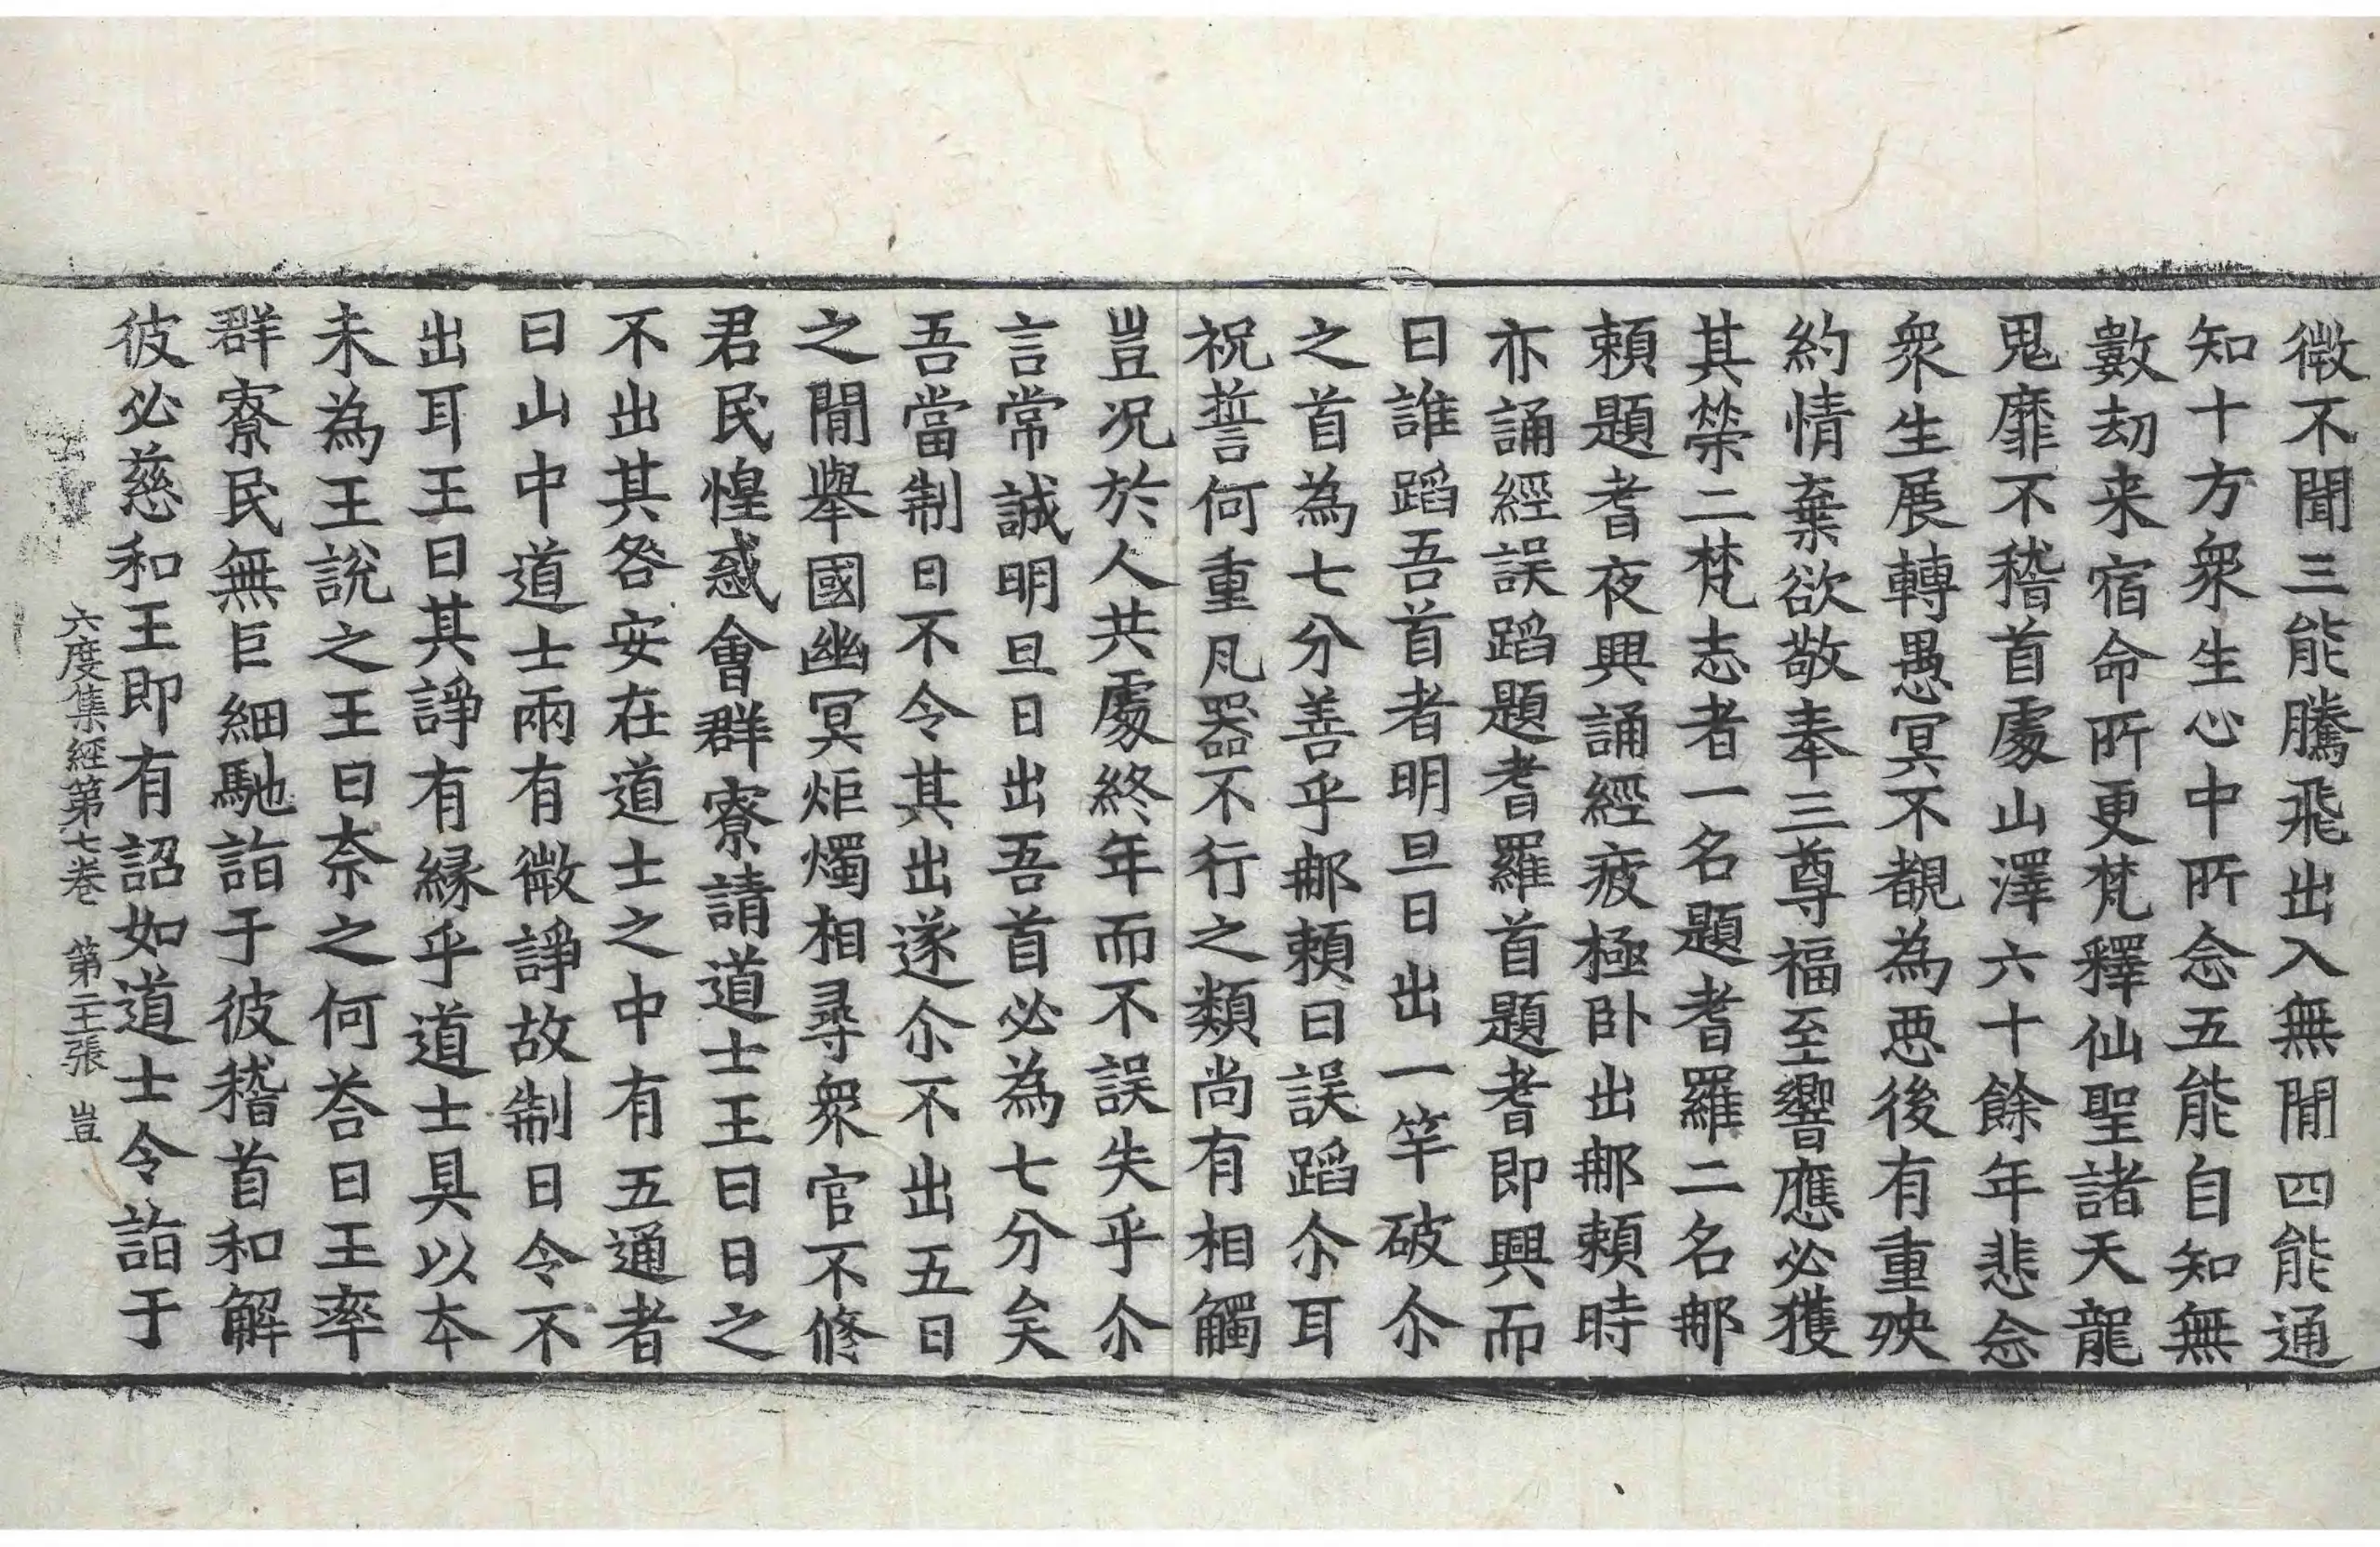 微不聞三能騰飛出入無閒四能通
知十方衆生心中所念五能自知無
數劫来宿命所更梵釋仙聖諸天龍
鬼靡不稽首處山澤六十餘年悲念
衆生展轉愚冥不覩為惡後有重殃
約情棄欲敬奉三尊福至響應必獲
其榮二梵志者一名題耆羅二名𨙻
賴題耆夜興誦經疲極卧出𨙻賴時
亦誦經誤蹈題耆羅首題耆即興而
曰誰蹈吾首者明旦日出一竿破尒
之首為七分善乎𨙻賴曰誤蹈尒耳
祝誓何重凡器不行之類尚有相觸
豈况於人共處終年而不誤失乎尒
言常誠明旦日出吾首必為七分矣
吾當制日不令其出遂尒不出五日
之閒舉國幽冥炬燭相尋衆官不修
君民惶惑會群寮請道士王曰日之
不出其咎安在道士之中有五通者
曰山中道士兩有微諍故制日令不
出耳王曰其諍有緣乎道士具以本
末為王說之王曰奈之何荅曰王率
群寮民無巨細馳詣于彼稽首和解
彼必慈和王即有詔如道士令詣于
六度集經第七卷 第二王張 豈